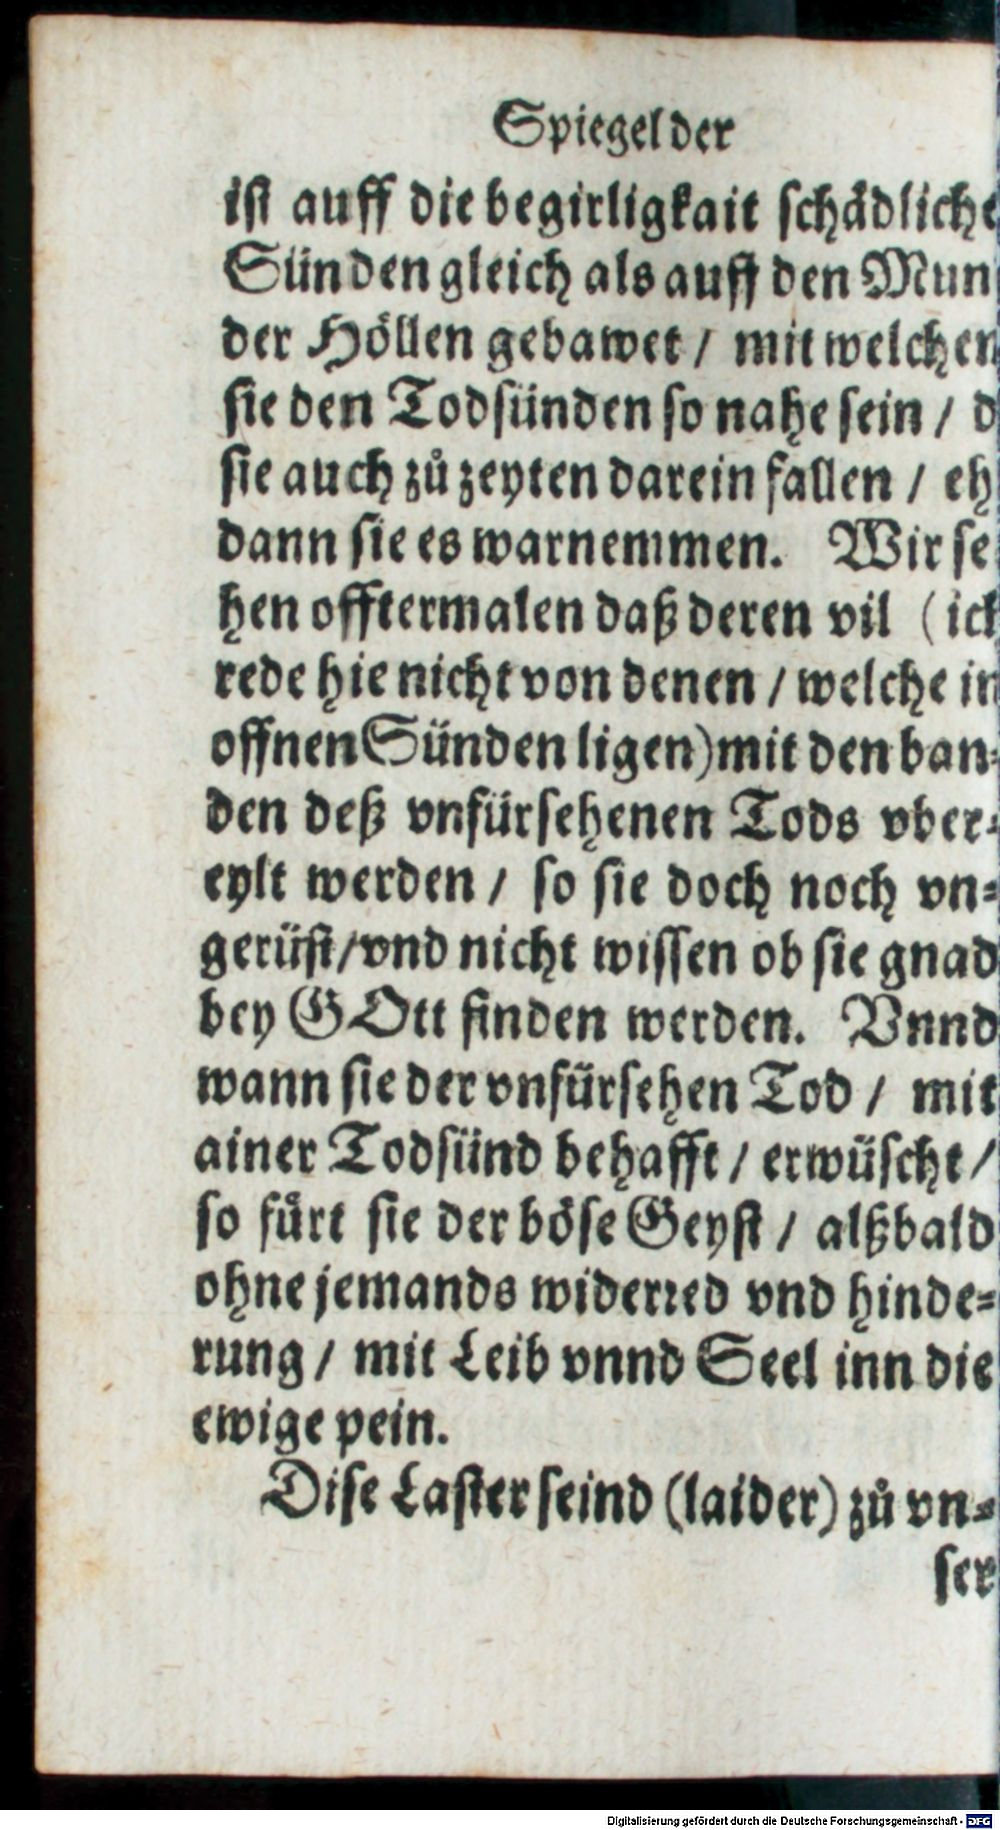 Spiegel der
ist auff die begirligkait schådliche
Sünden gleich als auff den Mun
der Höllen gebawet / mit welchen
sie den Todsünden so nahe sein / d
sie auch zů zeyten darein fallen / eh
dann sie es warnemmen. Wir se
hen offtermalen daß deren vil ( ich
rede hie nicht von denen / welche in
offnen Sünden ligen) mit den ban-
den deß vnfürsehenen Tods vber-
eylt werden / so sie doch noch vn-
gerüst / vnd nicht wissen ob sie gnad
bey GOtt finden werden. Vnnd
wann sie der vnfürsehen Tod / mit
ainer Todsünd behafft / erwüscht /
so fürt sie der böse Geyst / alßbald
ohne jemands widerred vnd hinde-
rung / mit Leib vnnd Seel inn die
ewige pein.
Dise Laster seind (laider) zů vn-
ser
Digitalisierung gefördert durch die Deutsche Forschungsgemeinschaft - DFG